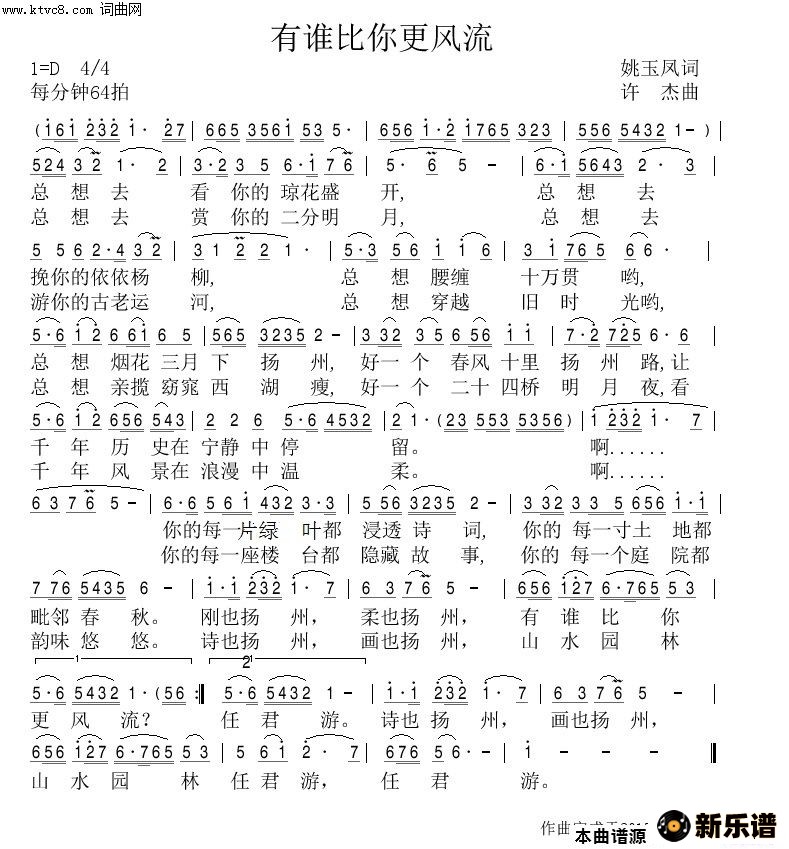 www.ktvc8.com 词曲网
有谁比你更风流
1=D 4/4 姚玉凤词
每分钟64拍 许 杰曲
(161 232 1· 27 | 665 3561 53 5· | 656 1·2 1765 323 | 556 5432 1-)|
524 3 2 1· 2 | 3·2 3 5 6·1 7 6 | 5· 6 5 - | 6·1 5643 2· 3 |
总 想 去 看 你的 琼花盛 开, 总 想 去
总 想 去 赏 你的 二分明 月, 总 想 去
5 56 2·4 3 2 | 3 1 2 2 1· | 5·3 5 6 1 1 2 6 | 3 1 765 6 6· |
挽你的依依杨 柳, 总 想 腰缠 十万贯 哟,
游你的古老运 河, 总 想 穿越 旧 时 光哟,
5·6 1 2 6 61 6 5 | 565 3235 2 - | 6·1 2 3 5 656 1 1 | 7·2 725 6·6 |
总 想 烟花 三月 下 扬 州, 好一 个 春风 十里 扬 州 路,让
总 想 亲揽 窈窕 西 湖 瘦, 好一 个 二十 四桥 明 月 夜,看
5·6 1 2 656 543 | 2 2 6 5·6 4532 | 2 1·(23 553 5356) | 1 232 1· 7 |
千 年 历 史在 宁静 中 停 留。 啊......
千 年 风 景在 浪漫 中 温 柔。 啊......
6 3 7 6 5 - | 6·6 5 6 1 432 3·3 | 5 56 3235 2 - | 3 332 3 5 656 1·1 |
你的 每一片绿 叶都 浸透 诗 词, 你的 每一寸土 地都
你的 每一座楼 台都 隐藏 故 事, 你的 每一个庭 院都
7 76 5435 6 - | 1·1 232 1· 7 | 6 3 7 6 5 - | 656 127 6·765 5 3 |
毗邻 春 秋。 刚也 扬 州, 柔也 扬 州, 有 谁 比 你
韵味 悠 悠。 诗也 扬 州, 画也 扬 州, 山 水 园 林
1 2
5·6 5432 1·(56 :‖ 5·6 5432 1 - | 1·1 232 1· 7 | 6 3 7 6 5 - |
更 风 流? 任 君 游。 诗也 扬 州, 画也扬 州,
656 127 6·765 5 3 | 5 61 2· 7 | 676 5 6· - | 1 - - - ‖
山 水 园 林 任 君 游, 任 君 游。
作曲
本曲谱源 新乐谱